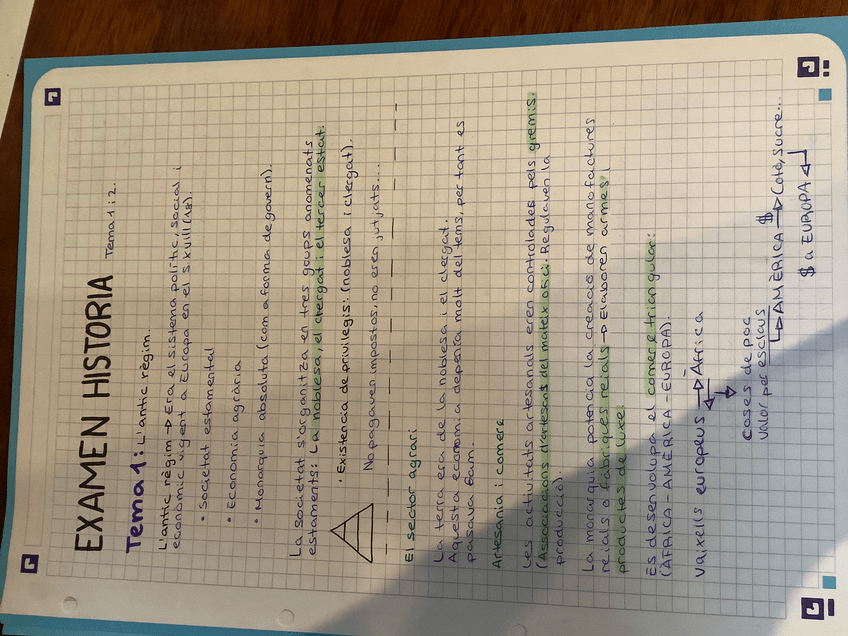 EXAMEN HISTORIA Tema 1 i 2.
Tema 1: L'antic règim.
L'antic règim → Era el sistema polític, social i
econòmic vigent a Europa en el S.XVIII (18).
· Societat estamental
· Economia agraria
· Monarquia absoluta (com a forma de govern).
La societat s'organitza en tres grups anomenats
estaments: La noblesa, el clergat i el tercer estat.
· Existencia de privilegis: (noblesa i clergat).
No pagaven impostos, no eren jutjats...
El sector agrari
La terra era de la noblesa i el clergat.
Aquesta economia depenia molt del tems, per tant es
pasava fam.
Artesania i comerç
Les activitats artesanals eren controlades pels gremis.
(Associacions d'artesans del mateix ofici. Regulaven la
producció).
La monarquia potencia la creació de manofactures
reials o fàbriques reials → Elaboren armes i
productes de luxe.
Es desenvolupa el comerç triangular:
(ÀFRICA - AMÈRICA - EUROPA).
Vaixells europeus → Àfrica
Coses de poc
valor per esclaus
→ AMÈRICA $ → Cotó, sucre...
$ a EUROPA